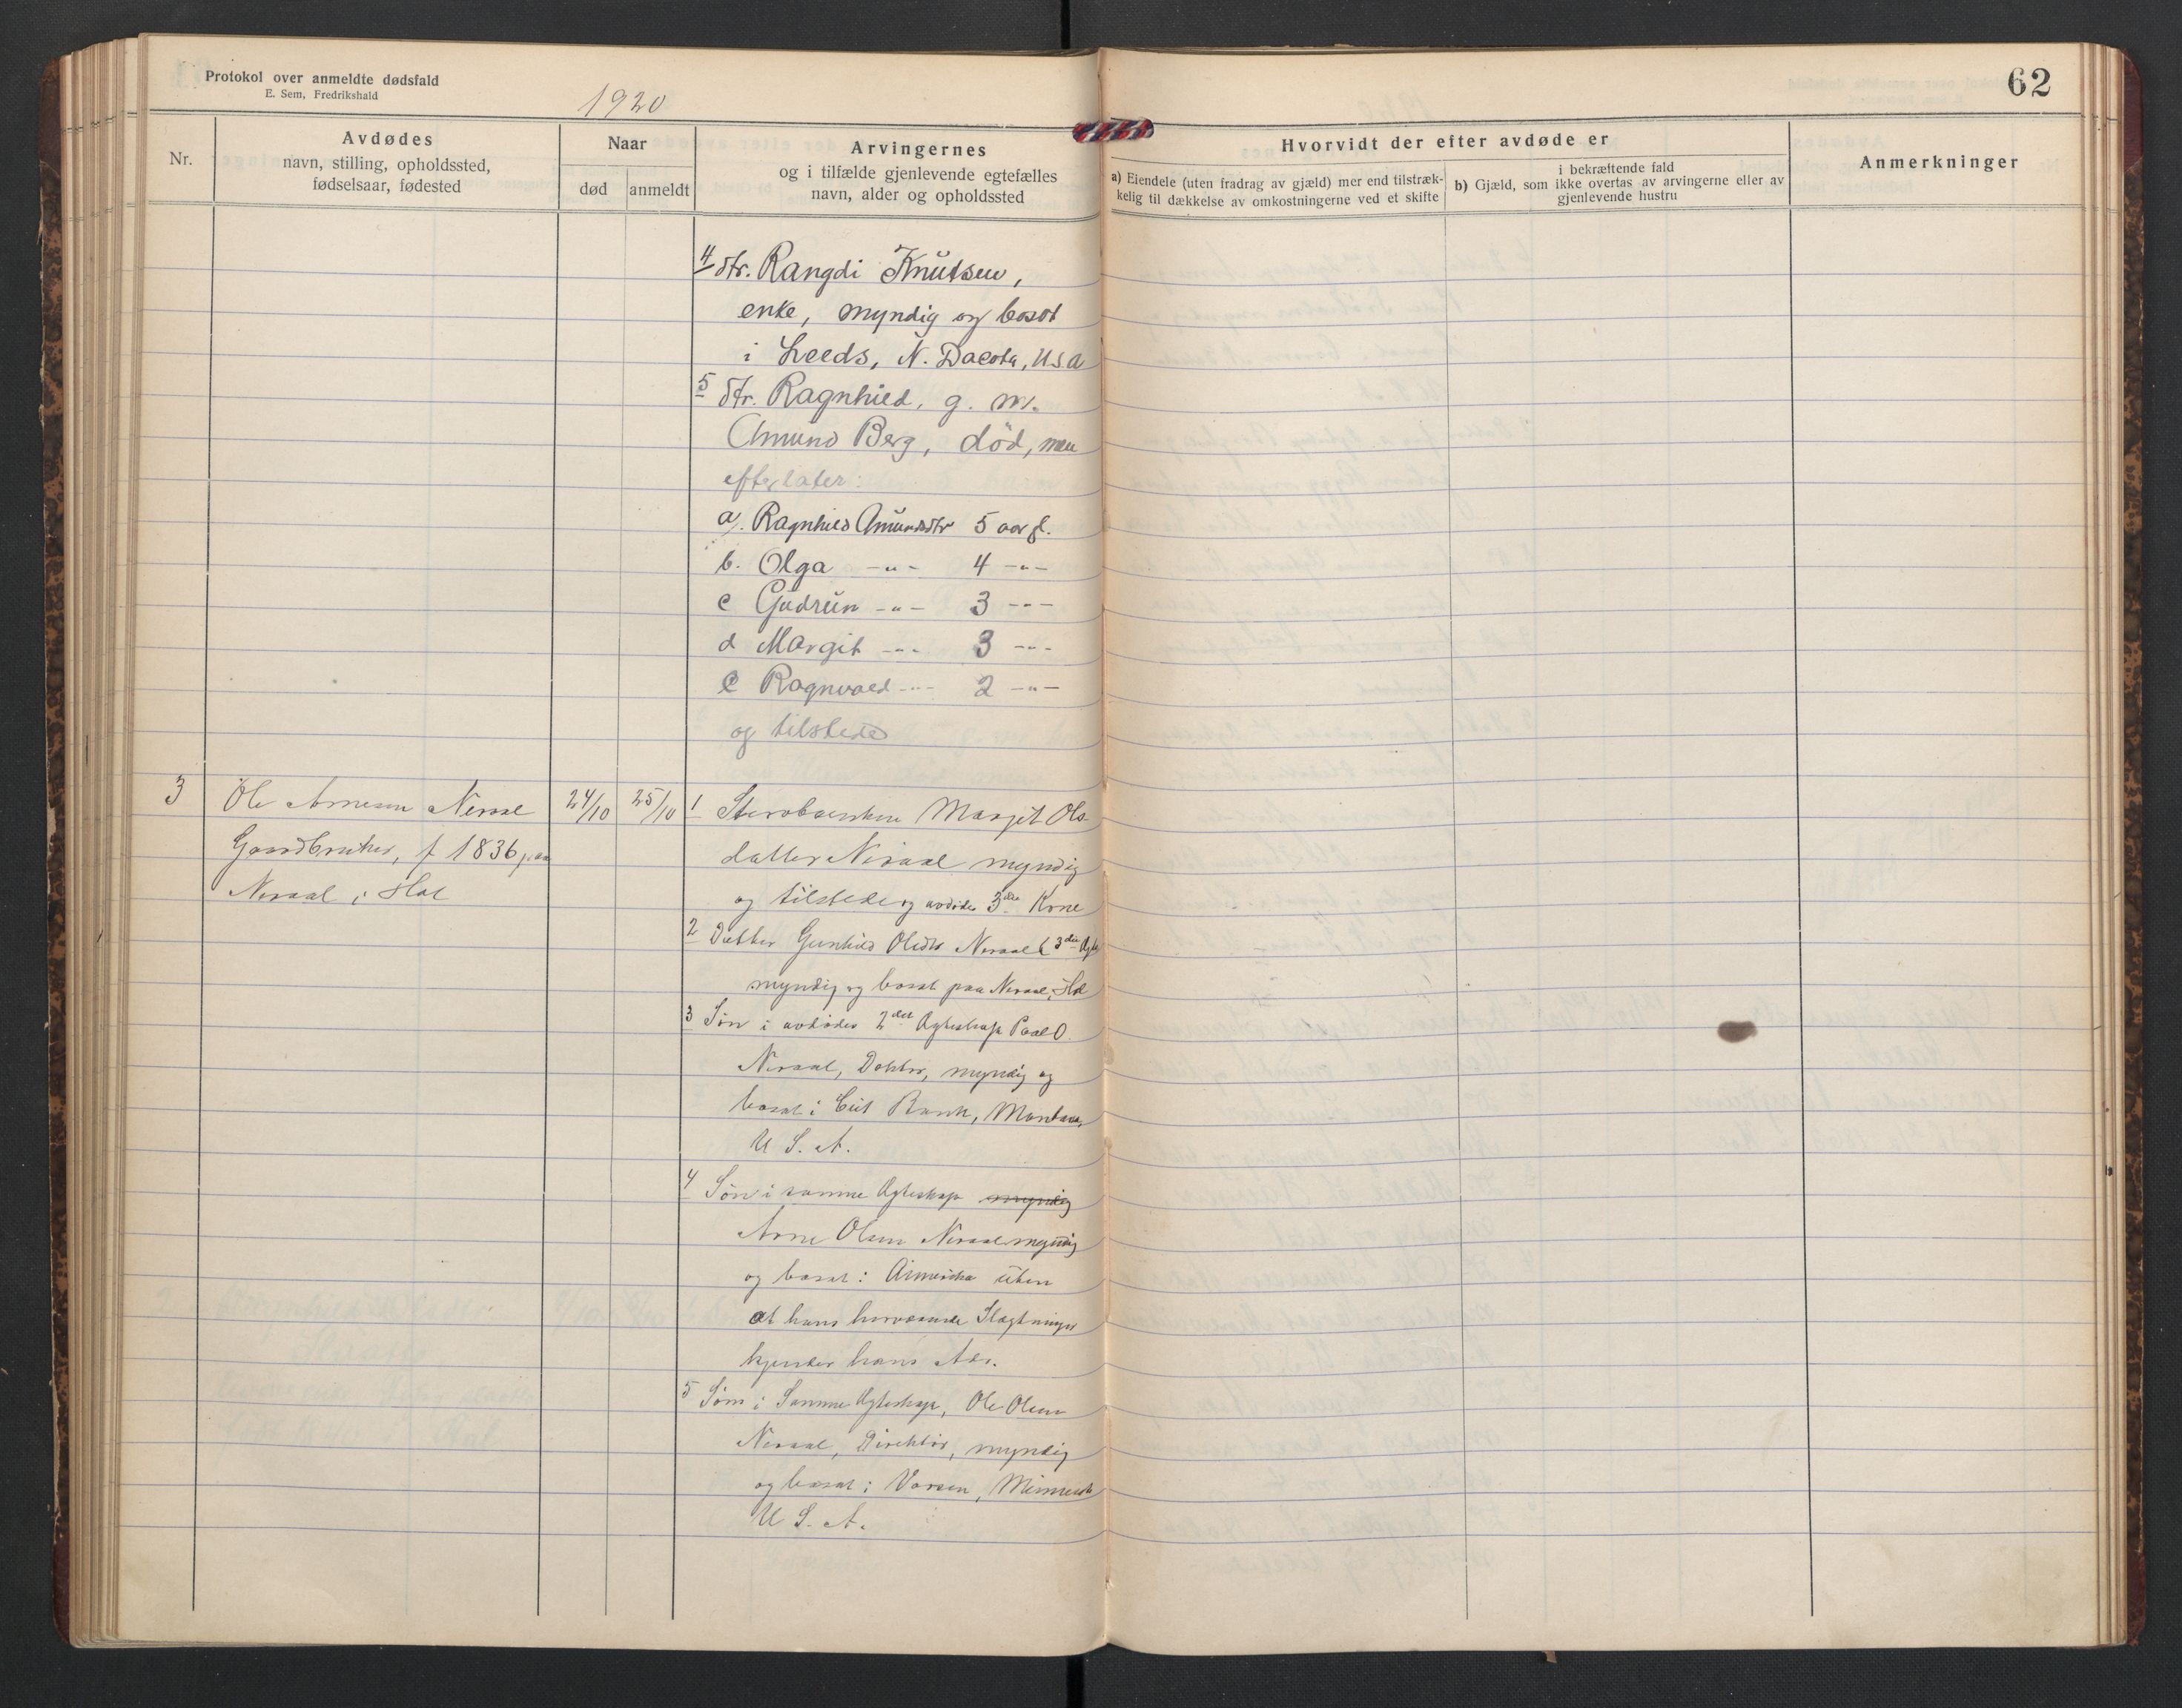 Protokol over anmeldte dødsfald
E. Sem, Fredrikshald
1920
Nr.
Avdødes
navn, stilling, opholdssted,
fødselsaar, fødested
Naar
død
anmeldt
Arvingernes
og i tilfælde gjenlevende egtefælles
navn, alder og opholdssted
62
Hvorvidt der efter avdøde er
a) Eiendele (uten fradrag av gjæld) mer end tilstræk-
kelig til dækkelse av omkostningerne ved et skifte
i bekræftende fald
b) Gjæld, som ikke overtas av arvingerne eller av
gjenlevende hustru
Anmerkninger
4 dtr. Rangdi Knutsen,
enke, myndig og bosat
i Leeds, N. Dacota, U.S.A
5 dtr. Ragnhild, g. m.
Amund Berg, död, men
efterlater:
a. Ragnhild Amundsdtr 5 aar gl.
b. Olga -"- 4 -"-
c Gudrun -"- 3 -"-
d Margit -"- 3 -"-
e Ragnvald -"- 2 -"-
og tilstede
3 Ole Arnesen Neraal
Gaardbruker, f 1836 paa
Neraal i Hol
24/10 25/10
1 Stervboenken Margit Ols
datter Neraal myndig
og tilstede og avdødes 3die Kone
2 Datter Gunhild Olsdtr Neraal i 3die Ægt
myndig og bosat paa Neraal, Hol
3 Søn i avdødes 2det Ægteskap Paal O.
Neraal, Doktor, myndig og
bosat i Cut Bank, Montana,
U. S. A.
4 Søn i samme Ægteskap myndig
Arne Olsen Neraal myndig
og bosat i Amerika uten
at hans herværende Slægtninger
kjender hans Adr.
5 Søn i Samme Ægteskap, Ole Olsen
Neraal, Direktør, myndig
og bosat i Varren, Minnesota
U. S. A.